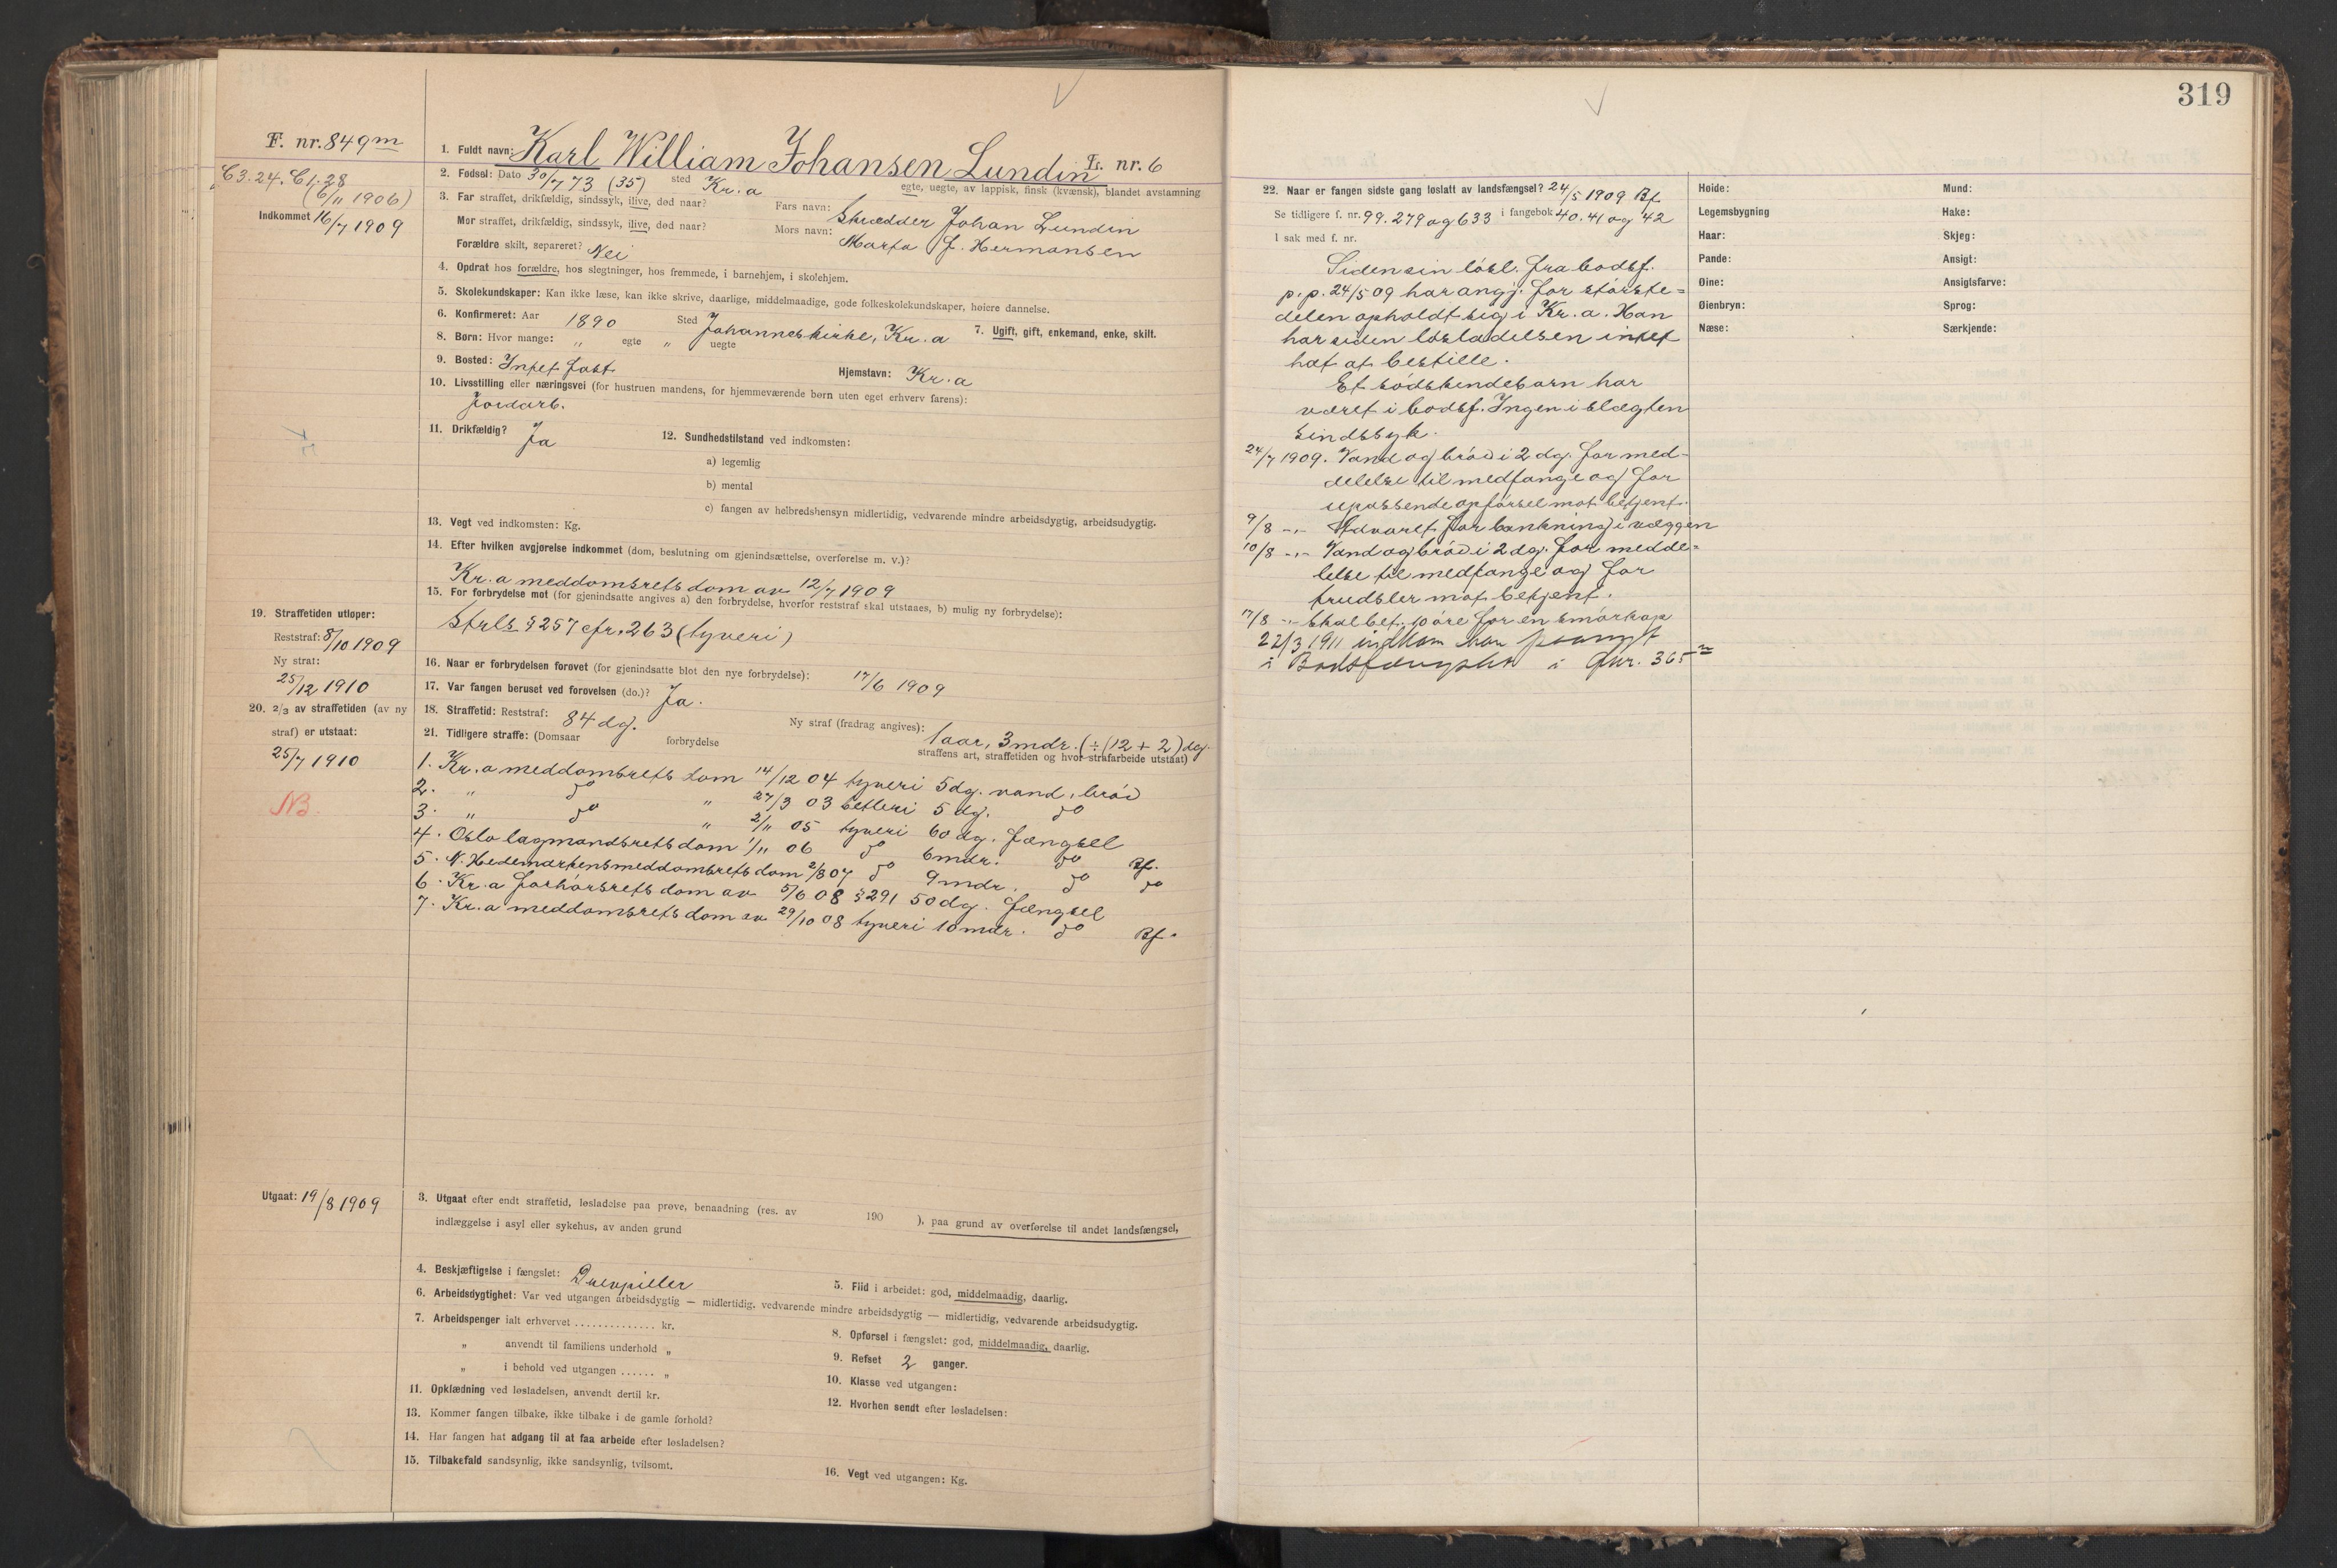 F. nr. 849m
C3.24. C1.28
(6/11 1906)
Indkommet 16/7 1909
1. Fuldt navn: Karl William Johansen Lundin Fs. nr. 6
2. Fødsel: Dato 30/7 73 (35) sted Kr.a egte, uegte, av lappisk, finsk (kvænsk), blandet avstamning
3. Far straffet, drikfældig, sindssyk, ilive, død naar? Fars navn: Skrædder Johan Lundin
Mor straffet, drikfældig, sindssyk, ilive, død naar? Mors navn: Marta J. Hermansen
Forældre skilt, separeret? Nei
4. Opdrat hos forældre, hos slegtninger, hos fremmede, i barnehjem, i skolehjem.
5. Skolekundskaper: Kan ikke læse, kan ikke skrive, daarlige, middelmaadige, gode folkeskolekundskaper, høiere dannelse.
6. Konfirmeret: Aar 1890 Sted Johanneskirke, Kr.a 7. Ugift, gift, enkemand, enke, skilt.
8. Børn: Hvor mange: " egte " uegte
9. Bosted: Intet fast Hjemstavn: Kr.a
10. Livsstilling eller næringsvei (for hustruen mandens, for hjemmeværende børn uten eget erhverv farens):
Jordarb.
11. Drikfældig? Ja 12. Sundhedstilstand ved indkomsten:
a) legemlig
b) mental
c) fangen av helbredshensyn midlertidig, vedvarende mindre arbeidsdygtig, arbeidsudygtig.
13. Vegt ved indkomsten: Kg.
14. Efter hvilken avgjørelse indkommet (dom, beslutning om gjenindsættelse, overførelse m. v.)?
Kr.a meddomsrets dom av 12/7 1909
15. For forbrydelse mot (for gjenindsatte angives a) den forbrydelse, hvorfor reststraf skal utstaaes, b) mulig ny forbrydelse):
Strls § 257 cfr. 263 (tyveri)
16. Naar er forbrydelsen forøvet (for gjenindsatte blot den nye forbrydelse): 17/6 1909
17. Var fangen beruset ved forøvelsen (do.)? Ja.
18. Straffetid: Reststraf: 84 dg. Ny straf (fradrag angives): 1 aar, 3 mdr. (÷(12 + 2) dg.
19. Straffetiden utløper:
Reststraf: 8/10 1909
Ny straf:
25/12 1910
20. 2/3 av straffetiden (av ny
straf) er utstaat:
25/7 1910
NB.
21. Tidligere straffe: (Domsaar forbrydelse straffens art, straffetiden og hvor strafarbeide utstaat)
1. Kr.a meddomsrets dom 14/12 04 tyveri 5 dg. vand, brød
2. " do " 27/3 03 betleri 5 dg. do
3. " do " 2/11 05 tyveri 60 dg. fængsel
4. Oslo lagmandsrets dom 1/11 06 do 6 mdr. do Bf.
5. N. Hedemarkens meddomsrets dom 2/8 07 do 9 mdr. do do
6. Kr.a forhørsrets dom av 5/6 08 § 291 50 dg. fængsel
7. Kr.a meddomsrets dom av 29/10 08 tyveri 10 mdr. do Bf.
Utgaat: 19/8 1909
3. Utgaat efter endt straffetid, løsladelse paa prøve, benaadning (res. av 190 ), paa grund av overførelse til andet landsfængsel,
indlæggelse i asyl eller sykehus, av anden grund
4. Beskjæftigelse i fængslet: Drevpiller 5. Flid i arbeidet: god, middelmaadig, daarlig.
6. Arbeidsdygtighet: Var ved utgangen arbeidsdygtig — midlertidig, vedvarende mindre arbeidsdygtig — midlertidig, vedvarende arbeidsudygtig.
7. Arbeidspenger ialt erhvervet .............. kr.
" anvendt til familiens underhold "
" i behold ved utgangen ...... "
8. Opførsel i fængslet: god, middelmaadig, daarlig.
9. Refset 2 ganger.
10. Klasse ved utgangen:
11. Opklædning ved løsladelsen, anvendt dertil kr.
12. Hvorhen sendt efter løsladelsen:
13. Kommer fangen tilbake, ikke tilbake i de gamle forhold?
14. Har fangen hat adgang til at faa arbeide efter løsladelsen?
15. Tilbakefald sandsynlig, ikke sandsynlig, tvilsomt.
16. Vegt ved utgangen: Kg.
319
22. Naar er fangen sidste gang løslatt av landsfængsel? 24/5 1909 Bf.
Se tidligere f. nr. 99. 279 og 633 i fangebok 40. 41 og 42
I sak med f. nr.
Siden sin løsl. fra bodsf.
p.p. 24/5 09 har angj. for største=
delen opholdt sig i Kr.a. Han
har siden løsladelsen intet
hat at bestille.
Et sødskendebarn har
været i bodsf. Ingen i slægten
sindssyk.
24/7 1909. Vand og brød i 2 dg. for med-
delelse til medfange og for
upassende opførsel mot betjent.
9/8 -"- Advaret for bankning i væggen
10/8 -"- Vand og brød i 2 dg. for medde=
lelse til medfange og for
trudsler mot betjent.
17/8 -"- Skal bet. 10 øre for en smørkop
22/3 1911 indkom han paanyt
i Bodsfængslet i fnr. 365m
Høide:
Legemsbygning
Haar:
Pande:
Øine:
Øienbryn:
Næse:
Mund:
Hake:
Skjeg:
Ansigt:
Ansigtsfarve:
Sprog:
Særkjende: